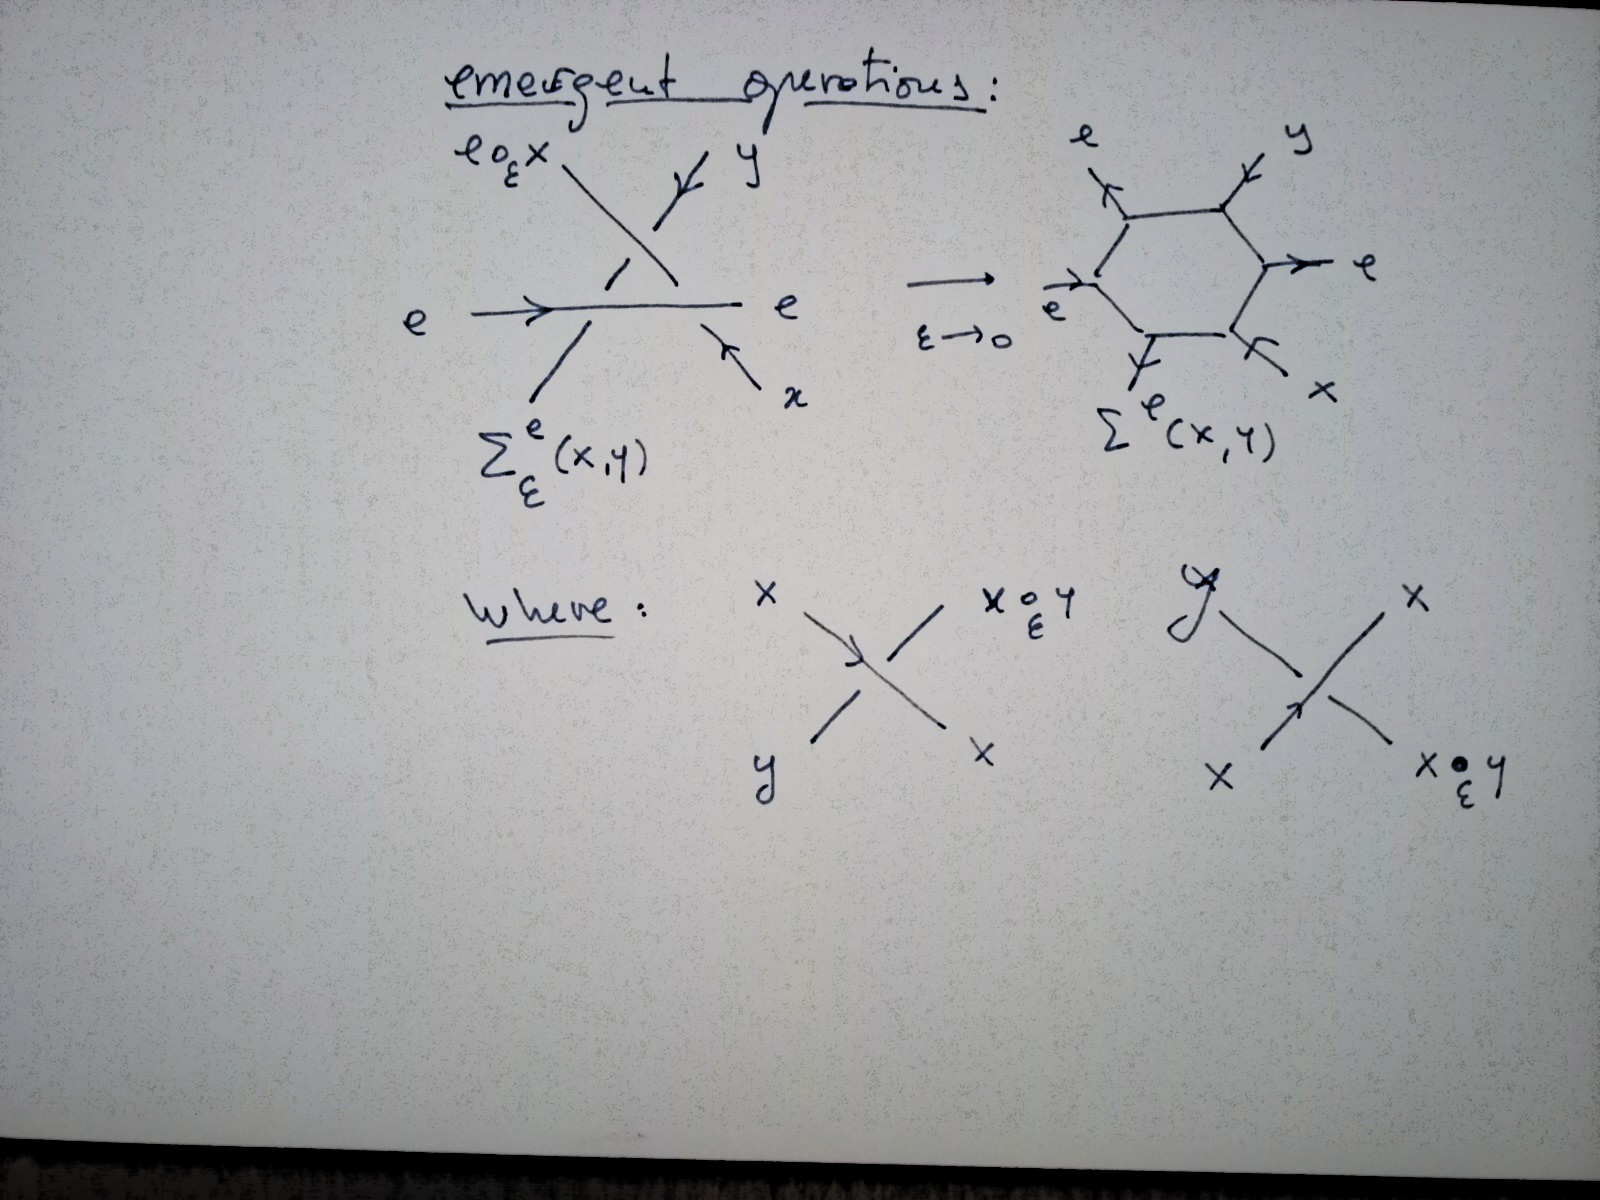 emergent operations:
e ∘_ε x
y
e
e
x
Σ_ε^e (x,y)
⟶
ε → 0
e
y
e
e
x
Σ^e (x,y)
where:
x
x ∘_ε y
y
x
y
x
x
x •_ε y